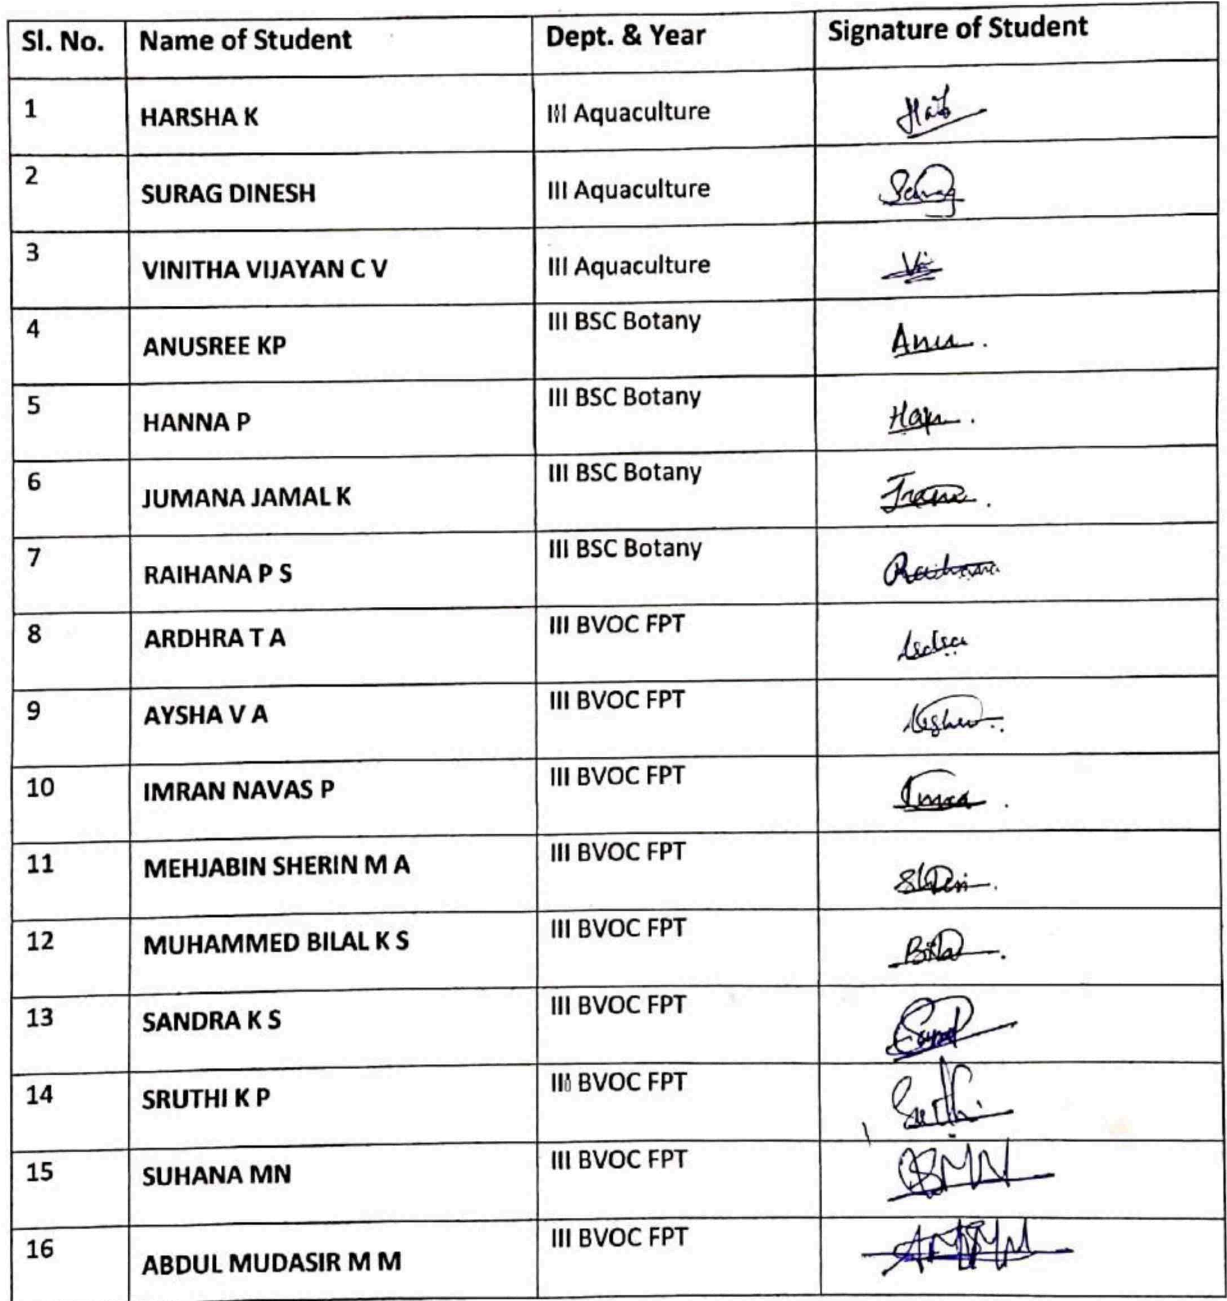 Sl. No. Name of Student Dept. & Year Signature of Student
1 HARSHA K III Aquaculture
2 SURAG DINESH III Aquaculture Surag
3 VINITHA VIJAYAN C V III Aquaculture Vi
4 ANUSREE KP III BSC Botany Anu.
5 HANNA P III BSC Botany
6 JUMANA JAMAL K III BSC Botany
7 RAIHANA P S III BSC Botany Raihana
8 ARDHRA T A III BVOC FPT
9 AYSHA V A III BVOC FPT
10 IMRAN NAVAS P III BVOC FPT
11 MEHJABIN SHERIN M A III BVOC FPT
12 MUHAMMED BILAL K S III BVOC FPT Bilal.
13 SANDRA K S III BVOC FPT
14 SRUTHI K P III BVOC FPT Sruthi
15 SUHANA MN III BVOC FPT
16 ABDUL MUDASIR M M III BVOC FPT